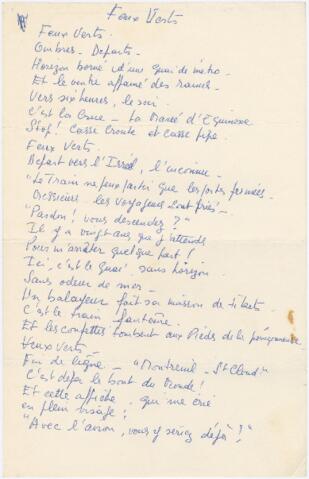 Feux Verts
Feux Verts.
Ombres - Departs -
Horizon borné d'une quai de métro -
Et le ventre affamé des rames -
Vers six heures, le soir
C'est la Crue - La Marée d'Equinoxe
Stop! Casse croute et casse pipe.
Feux Verts.
Depart vers l'Irréel, l'inconnue -
"Le Train ne peux partir que les portes fermées -
Messieurs les voyageurs sont priés -
"Pardon! vous descendez?"
Il y a vingt ans que j'attends
Pour m'arrêter quelque part!
Ici, c'est le quai sans horizon
Sans odeur de mer -
Un balayeur fait sa moisson de tickets -
C'est le train fantôme.
Et les confettis tombent aux Pieds de la
Feux Verts
Fin de ligne - "Montreuil - St Cloud"
C'est déja le bout du Monde!
Et cette affiche qui me crie
en plein visage!
"Avec l'avion, vous y seriez déja?"